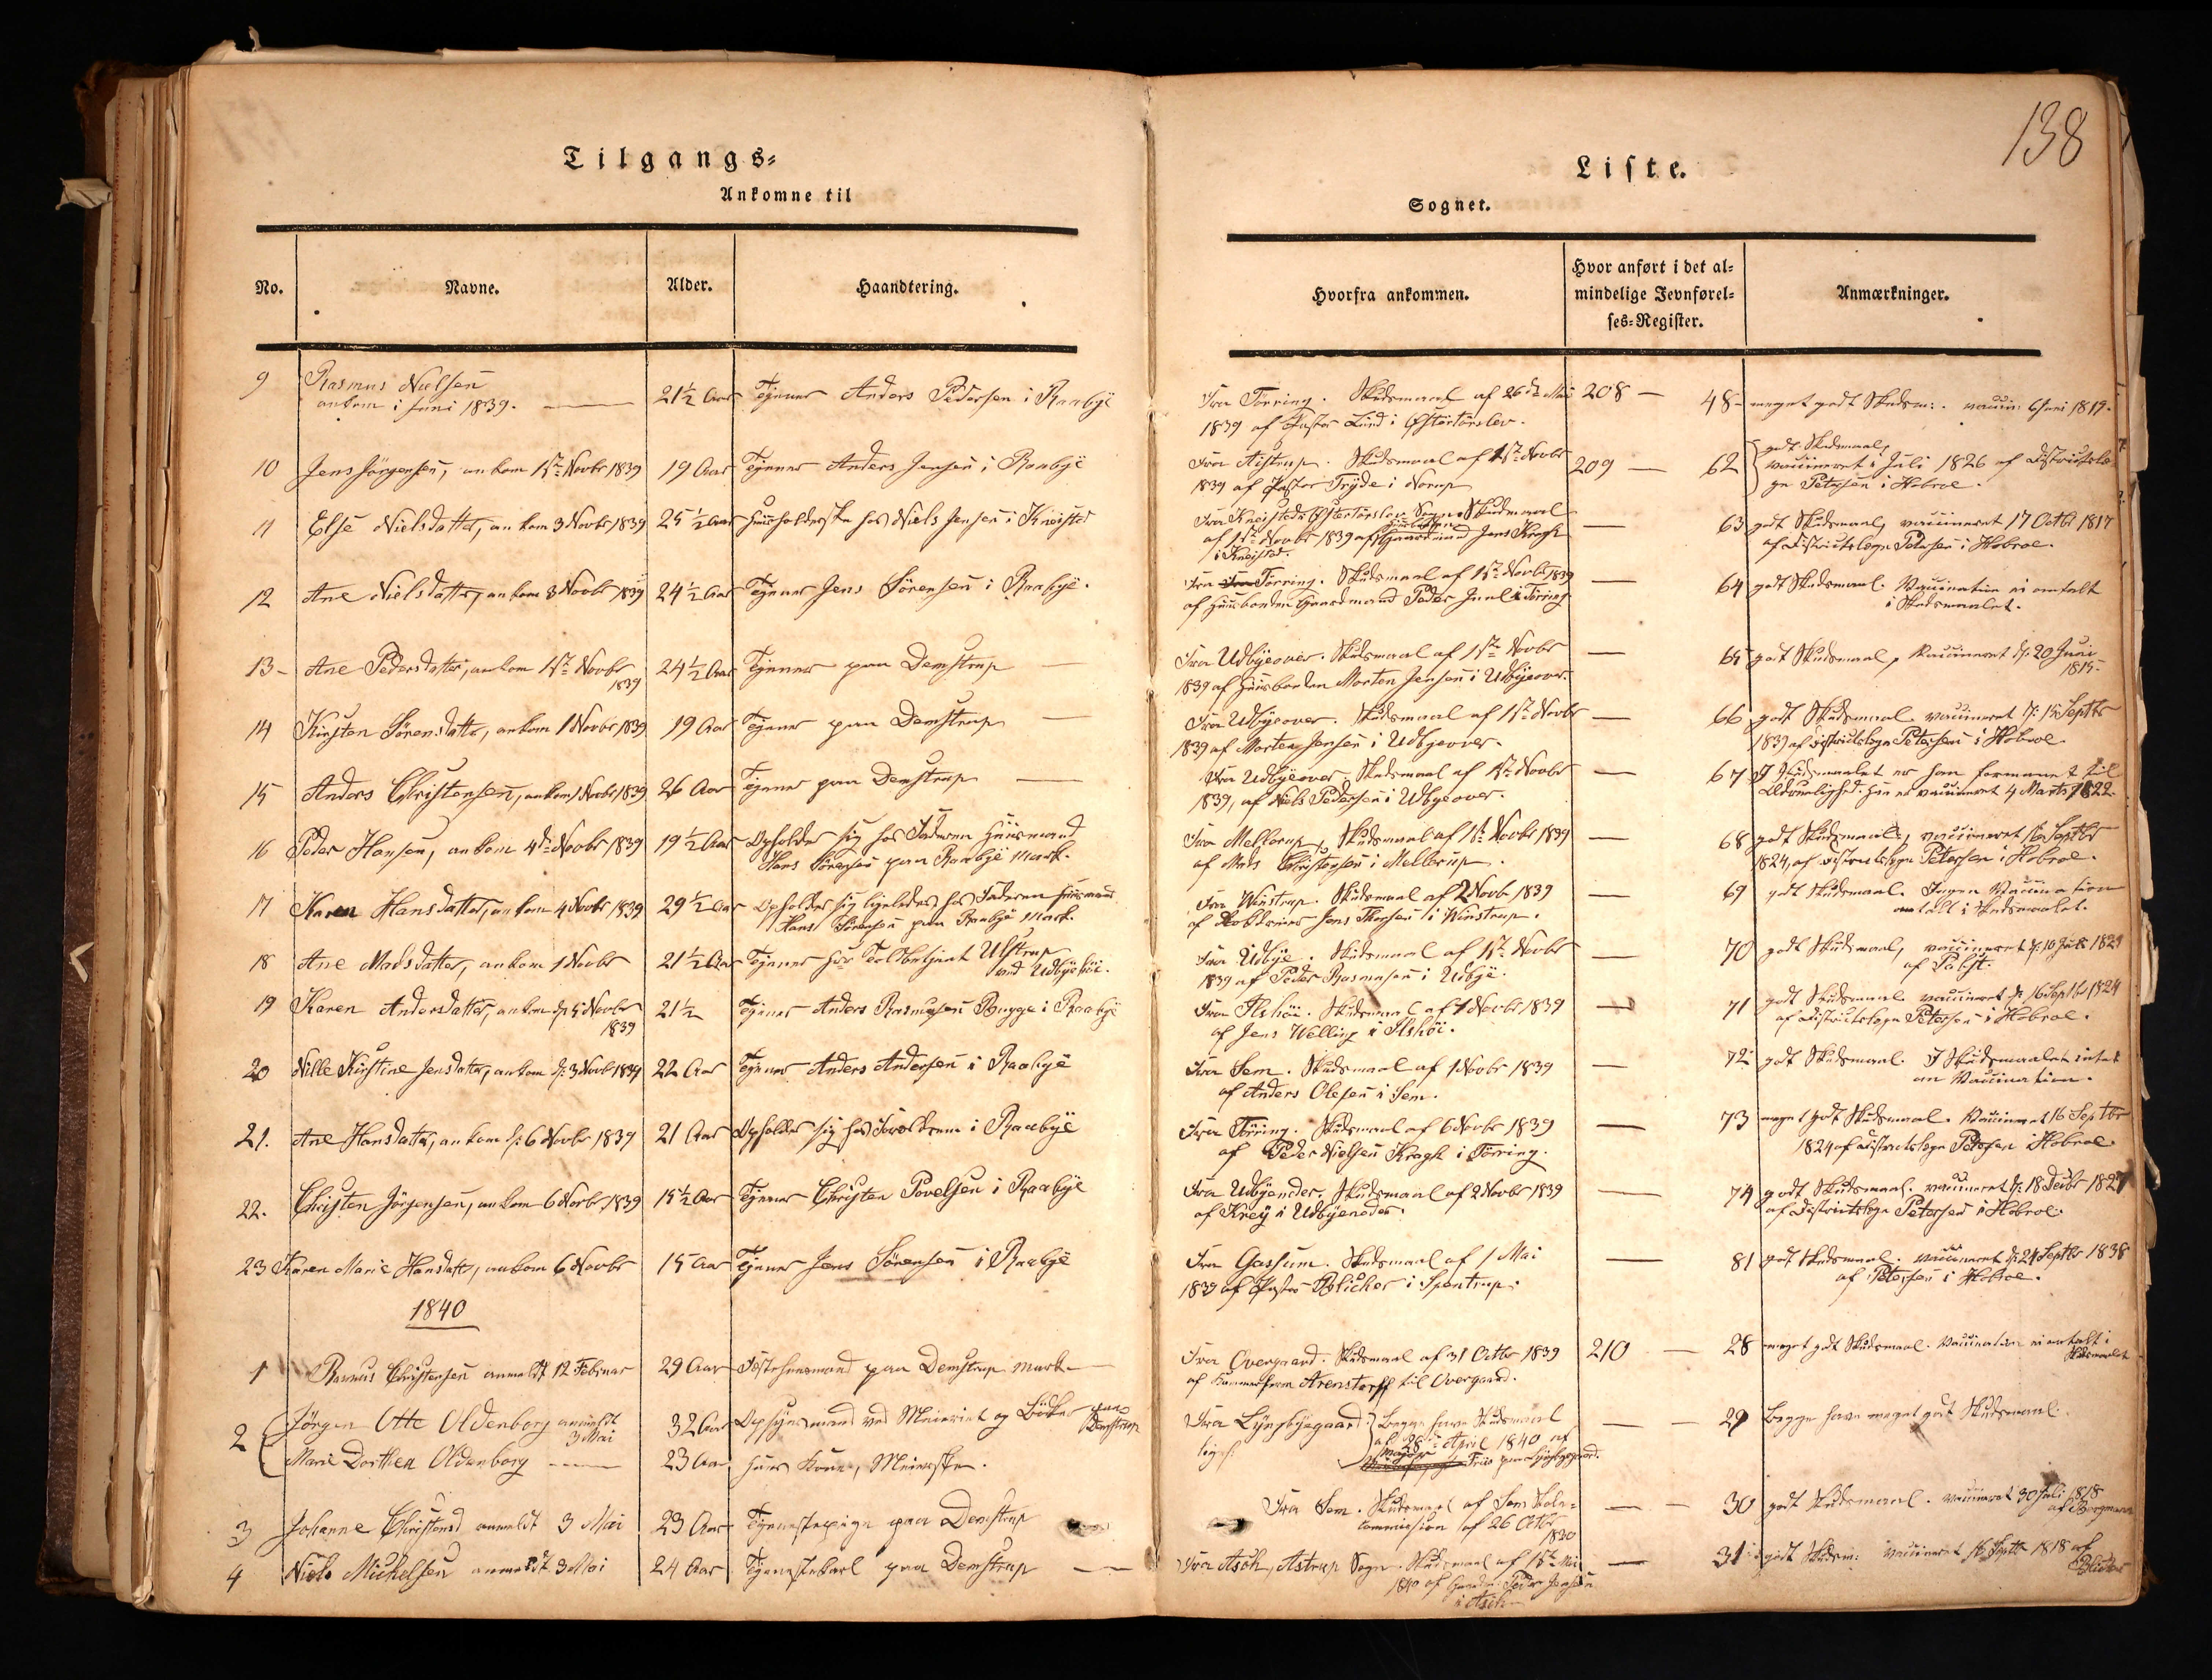 138
Tilgangs=
Liste.
Ankomne til
Sognet.
No.
Navne.
Alder.
Haandtering.
Hvorfra ankommen.
Hvor anført i det al=
mindelige Jevnførel=
ses=Register.
Anmærkninger.
9 Rasmus Nielsen 21½ Aar Tjener Anders Pedersen i Raabÿe Fra Törring. Skudsmaal af 26de Mai 208 — 48 meget godt Skudsm: vaccin: 6 Juni 1819.
ankom i Juni 1839.
1839 af Pastor Lund i Østertörslev.
10 Jens Jörgensen, ankom 1ste Novbr 1839 19 Aar Tjener Anders Jensen i Raabÿe Fra Aistrup. Skudsmaal af 1ste Novbr 209 — 62 godt Skudsmaal,
vaccineret i Juli 1826 af Districtslæ
1839 af Pastor Tryde i Norup
ge Petersen i Hobroe.
11 Else Nielsdatter, ankom 3 Novbr 1839 25½ Aar Huusholderske hos Niels Jensen i Kneisted Fra Kneisted Østertörslev Sogn. Skudsmaal — 63 godt Skudsmaal, vaccineret 17 Octbr 1817
af 1ste Novbr 1839 af Huusbonden Gaardmand Jens Kragh
i Kneisted.
af Districtslæge Petersen i Hobroe.
12 Ane Nielsdatter, ankom 3 Novbr 1839 24½ Aar Tjener Jens Sörensen i Raabÿe. Fra Törring. Skudsmaal af 1ste Novbr 1839 — 64 godt Skudsmaal. Vaccination ei omtalt
af Huusbonden Gaardmand Peder Juul i Törring
i Skudsmaalet.
13 Ane Pedersdatter, ankom 1ste Novbr 24½ Aar Tjener paa Demstrup — Fra Udbÿeover. Skudsmaal af 1ste Novbr — 65 godt Skudsmaal, Vaccineret d: 20 Juni
1839
1839 af Huusbonden Morten Jensen i Udbÿeover.
1815.
14 Kirsten Sörensdatter, ankom 1 Novbr 1839 19 Aar Tjener paa Demstrup — Fra Udbÿeover. Skudsmaal af 1ste Novbr — 66 godt Skudsmaal. vaccineret d: 15 Septbr
1839 af Morten Jensen i Udbÿeover.
1839 af Districtslæge Petersen i Hobroe
15 Anders Christensen, ankom 1 Novbr 1839 26 Aar Tjener paa Demstrup — Fra Udbÿeover. Skudsmaal af 1ste Novbr — 67 I Skudsmaalet er han formanet til
1839, af Niels Pedersen i Udbÿeover.
Ædruelighed. Han er vaccineret 4 Marts 1822.
16 Peder Hansen, ankom 4de Novbr 1839 19½ Aar Opholder sig hos Faderen Huusmand Fra Mellerup. Skudsmaal af 1ste Novbr 1839 — 68 godt Skudsmaal, vaccineret 16 Septbr
Hans Sörensen paa Raabÿe Mark.
af Mads Christensen i Mellerup.
1824, af Districtslæge Petersen i Hobroe.
17 Karen Hansdatter, ankom 4 Novbr 1839 29½ Aar Opholder sig ligeledes hos Faderen Huusmand Fra Winstrup. Skudsmaal af 2 Novb 1839 — 69 godt Skudsmaal. Ingen Vaccination
Hans Sörensen paa Raabÿe Mark.
Jens Thorsen i Winstrup.
omtalt i Skudsmaalet.
18 Ane Madsdatter, ankom 1 Novbr 21½ Aar Tjener hos Toldbetjent Ulstrup Fra Udbÿe. Skudsmaal af 1ste Novbr — 70 godt Skudsmaal, vaccineret d: 10 Juli 1829
ved Udbÿehöi.
1839 af Peder Rasmusen i Udbÿe.
af Pabst.
19 Karen Andersdatter, ankom d: 5 Novbr 21½ Tjener Anders Rasmusen Brugge i Raabÿe Fra Ilshöi. Skudsmaal af 1 Novbr 1839 — 71 godt Skudsmaal. vaccineret d: 16 Septbr 1824
1839
af Jens Welling i Ilshöi.
af Districtslæge Petersen i Hobroe.
20 Nille Kirstine Jensdatter, ankom d: 3 Novb 1839 22 Aar Tjener Anders Andersen i Raabÿe Fra Sem. Skudsmaal af 1 Novbr 1839 — 72 godt Skudsmaal. I Skudsmaalet intet
af Anders Olesen i Sem.
om Vaccination.
21. Ane Hansdatter, ankom d: 6 Novbr 1839 21 Aar Opholder sig hos Forældrene i Raabÿe Fra Törring. Skudsmaal af 6 Novbr 1839 — 73 meget godt Skudsmaal. Vaccineret 16 Septbr
af Peder Nielsen Kragh i Törring.
1824 af Districtslæge Petersen i Hobroe
22. Christen Jörgensen, ankom 6 Novbr 1839 15½ Aar Tjener Christen Povelsen i Raabÿe Fra Udbÿeneder. Skudsmaal af 2 Novbr 1839 — 74 godt Skudsmaal. vaccineret d: 18 Decbr 1827
af Kreÿ i Udbÿeneder.
af Districtslæge Petersen i Hobroe.
23 Karen Marie Hansdatter, ankom 6 Novbr 15 Aar Tjener Jens Sörensen i Raabÿe Fra Gassum. Skudsmaal af 1 Mai — 81 godt Skudsmaal. vaccineret d: 24 Septbr 1838
1839 af Pastor Blicher i Spentrup.
af Petersen i Hobroe.
1840
1 Rasmus Christensen anmeldt 12 Februar 29 Aar Festehuusmand paa Demstrup Mark — Fra Overgaard. Skudsmaal af 31 Octbr 1839 210 — 28 meget godt Skudsmaal. Vaccination ei omtalt i
Skudsmaalet
af Kammerherre Arenstorff til Overgaard.
2 Jörgen Otte Oldenborg anmeldt 32 Aar Opsÿnsmand ved Meieriet og Bödker paa Fra Lÿngbÿegaard Begge have Skudsmaal — 29 Begge have meget godt Skudsmaal.
3 Mai
Demstrup
af 28de April 1840 af
Marie Dorthea Oldenborg — 23 Aar Hans Kone, Meierske. ligesl. Major Friis paa Lÿngbÿegaard.
3 Johanne Christensd anmeldt 3 Mai 23 Aar Tjenestepige paa Demstrup Fra Sem. Skudsmaal af Sem Skole= — 30 godt Skudsmaal. vaccineret 30 Juli 1818
commission af 26 Octbr
af Borgmann
1830
4 Niels Michelsen anmeldt 3 Mai 24 Aar Tjenestekarl paa Demstrup — Fra Asch, Astrup Sogn. Skudsmaal af 1ste Mai — 31 godt Skudsm: Vaccineret 16 Septbr 1818 af
1840 af Gaardm: Peder Jensen
Blicher
i Asch